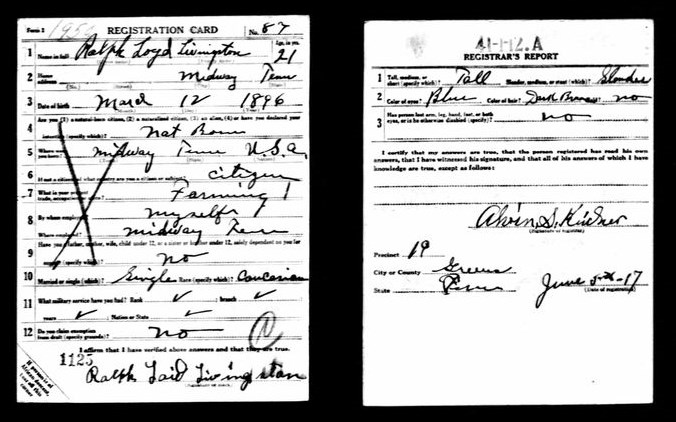 Form 1
REGISTRATION CARD
No. 87
1 Name in full Ralph Loyd Livingston
Age, in yrs. 21
2 Home address Midway Tenn
3 Date of birth March 12 1896
4 Are you (1) a natural-born citizen, (2) a naturalized citizen, (3) an alien, (4) or have you declared your intention (specify which)?
Nat Born
5 Where were you born? Midway Tenn U.S.A.
6 If not a citizen, of what country are you a citizen or subject? Citizen
7 What is your present trade, occupation, or office? Farming
8 By whom employed? myself
Where employed? midway Tenn
9 Have you a father, mother, wife, child under 12, or a sister or brother under 12, solely dependent on you for support (specify which)?
No
10 Married or single (which)? Single Race (specify which)? Caucasian
11 What military service have you had? Rank ✓ branch ✓
years ✓ Nation or State ✓
12 Do you claim exemption from draft (specify grounds)? No
I affirm that I have verified above answers and that they are true.
1125
Ralph Loid Livingston
If person is of African descent, tear off this corner
41-1-12. A
REGISTRAR'S REPORT
1 Tall, medium, or short (specify which)? Tall Slender, medium, or stout (which)? Slender
2 Color of eyes? Blue Color of hair? Dark Brown Bald? no
3 Has person lost arm, leg, hand, foot, or both eyes, or is he otherwise disabled (specify)?
no
I certify that my answers are true, that the person registered has read his own
answers, that I have witnessed his signature, and that all of his answers of which I have
knowledge are true, except as follows:
Alvin S.
(Signature of registrar)
Precinct 19
City or County Greene
State Tenn
June 5th-17
(Date of registration)